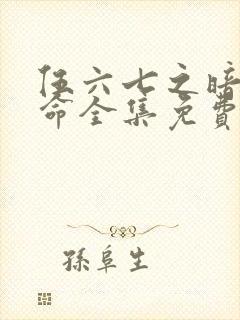 伍六七之暗
命全集免費
孫阜生